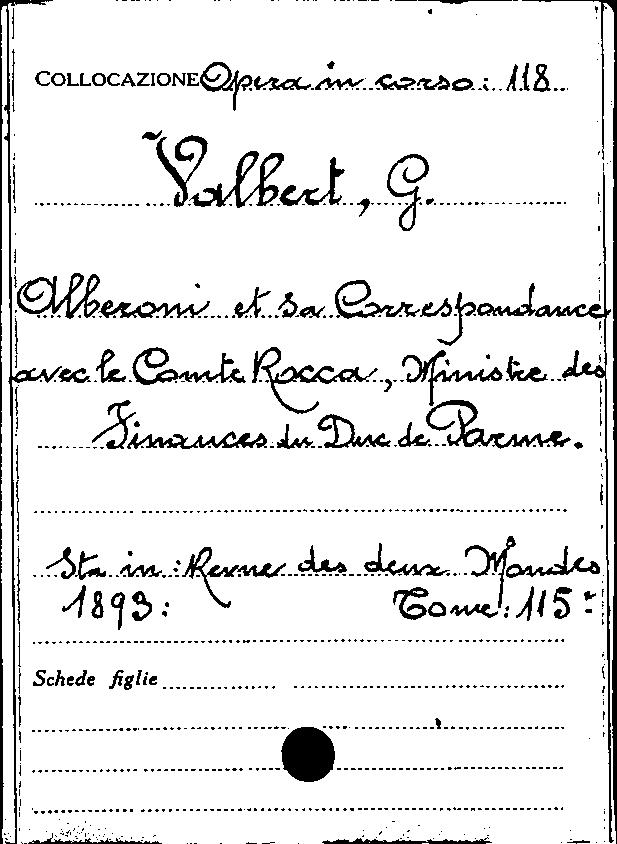 COLLOCAZIONE Opera in corso: 118
Valbert, G.
Alberoni et sa Correspondance
avec le Comte Rocca, Ministre des
Finances du Duc de Parme.
Sta in: Revue des deux Mondes
1893: Tome: 115º
Schede figlie